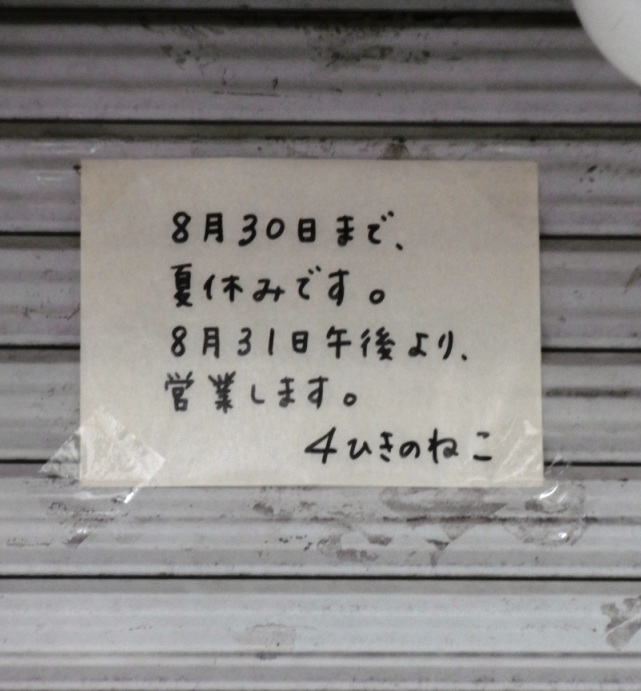 8月30日まで、
夏休みです。
8月31日午後より、
営業します。
4ひきのねこ